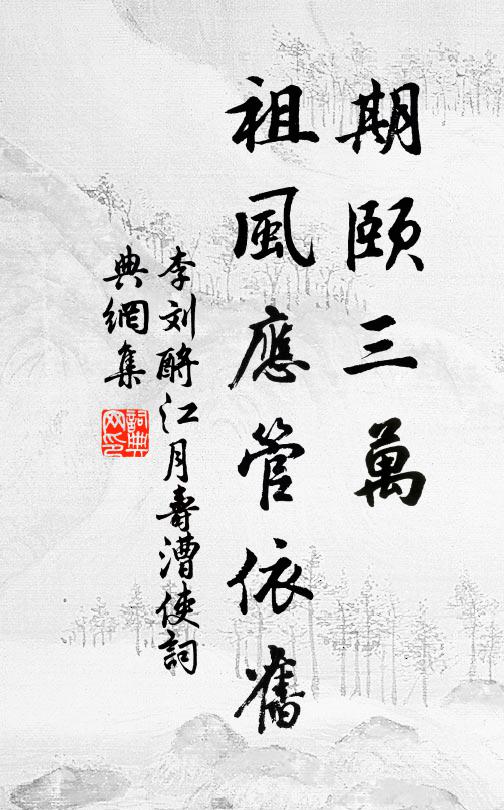 期頤三萬
祖風應管依舊
李刘酹江月壽漕使詞
典網集
詞典网印